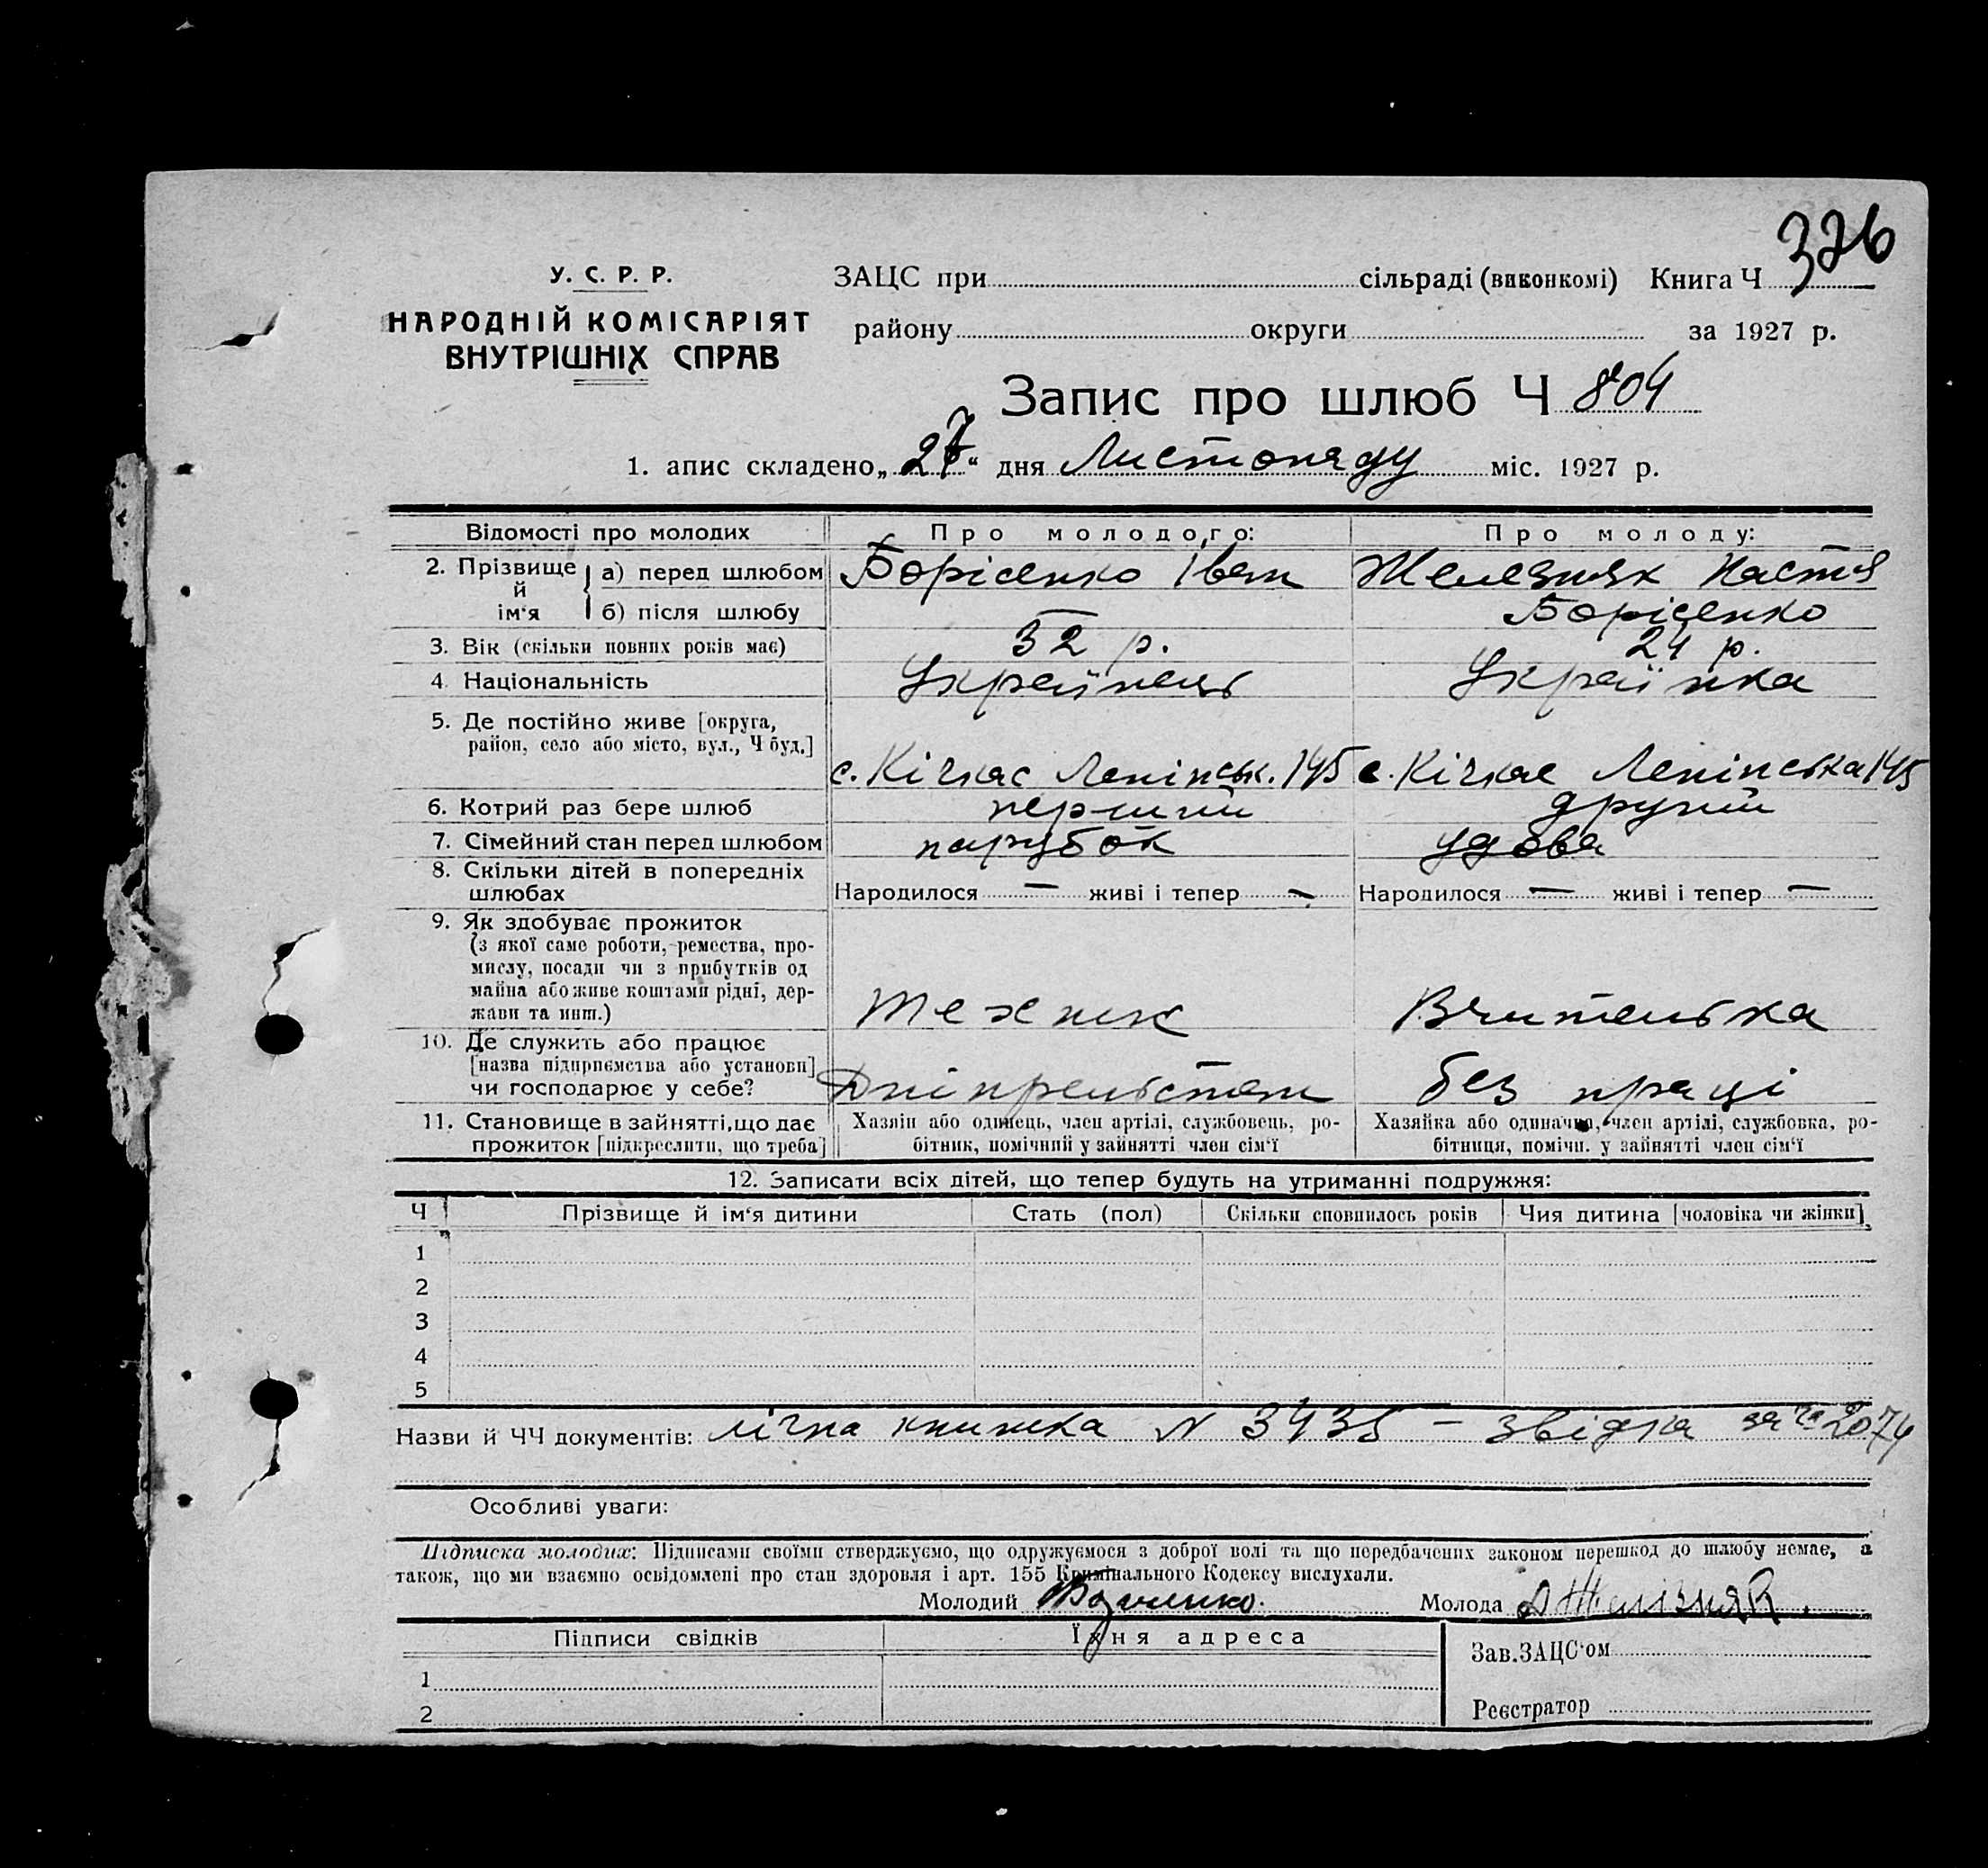 326
У. С. Р. Р.
НАРОДНІЙ КОМІСАРІЯТ
ВНУТРІШНІХ СПРАВ
ЗАЦС при сільраді (виконкомі) Книга Ч
району округи за 1927 р.
Запис про шлюб Ч 804
1. апис складено „27“ дня Листопаду міс. 1927 р.
Відомості про молодих Про молодого: Про молоду:
2. Прізвище й ім‘я а) перед шлюбом Борісенко Іван Железняк Настя
б) після шлюбу — Борісенко
3. Вік (скільки повних років має) 32 р. 24 р.
4. Національність Українець Українка
5. Де постійно живе [округа,
район, село або місто, вул., Ч буд.] с. Кічкас Ленінськ. 145 с. Кічкас Ленінська 145
6. Котрий раз бере шлюб перший другий
7. Сімейний стан перед шлюбом парубок удова
8. Скільки дітей в попередніх
шлюбах Народилося — живі і тепер — Народилося — живі і тепер —
9. Як здобуває прожиток
(з якої саме роботи, ремества, про-
мислу, посади чи з прибутків од
майна або живе коштами рідні, дер-
жави та инш.) Технік Вчителька
10. Де служить або працює
[назва підприємства або установи]
чи господарює у себе? Дніпрельстан без праці
11. Становище в зайнятті, що дає Хазяін або одинець, член артілі, службовець, ро- Хазяйка або одиначка, член артілі, службовка, ро-
прожиток [підкреслити, що треба] бітник, помічний у зайнятті член сім‘ї бітниця, помічн. у зайнятті член сім‘ї
12. Записати всіх дітей, що тепер будуть на утриманні подружжя:
Ч Прізвище й ім‘я дитини Стать (пол) Скільки сповнилось років Чия дитина [чоловіка чи жінки]
1
2
3
4
5
Назви й ЧЧ документів: лічна книжка N 3435 — звідка за 2074
Особливі уваги:
Підписка молодих: Підписами своїми стверджуємо, що одружуємося з доброї волі та що передбачених законом перешкод до шлюбу немає, а
також, що ми взаємно освідомлені про стан здоровля і арт. 155 Кримінального Кодексу вислухали.
Молодий Молода Железняк
Підписи свідків Їхня адреса Зав. ЗАЦС‘ом
1
2 Реєстратор